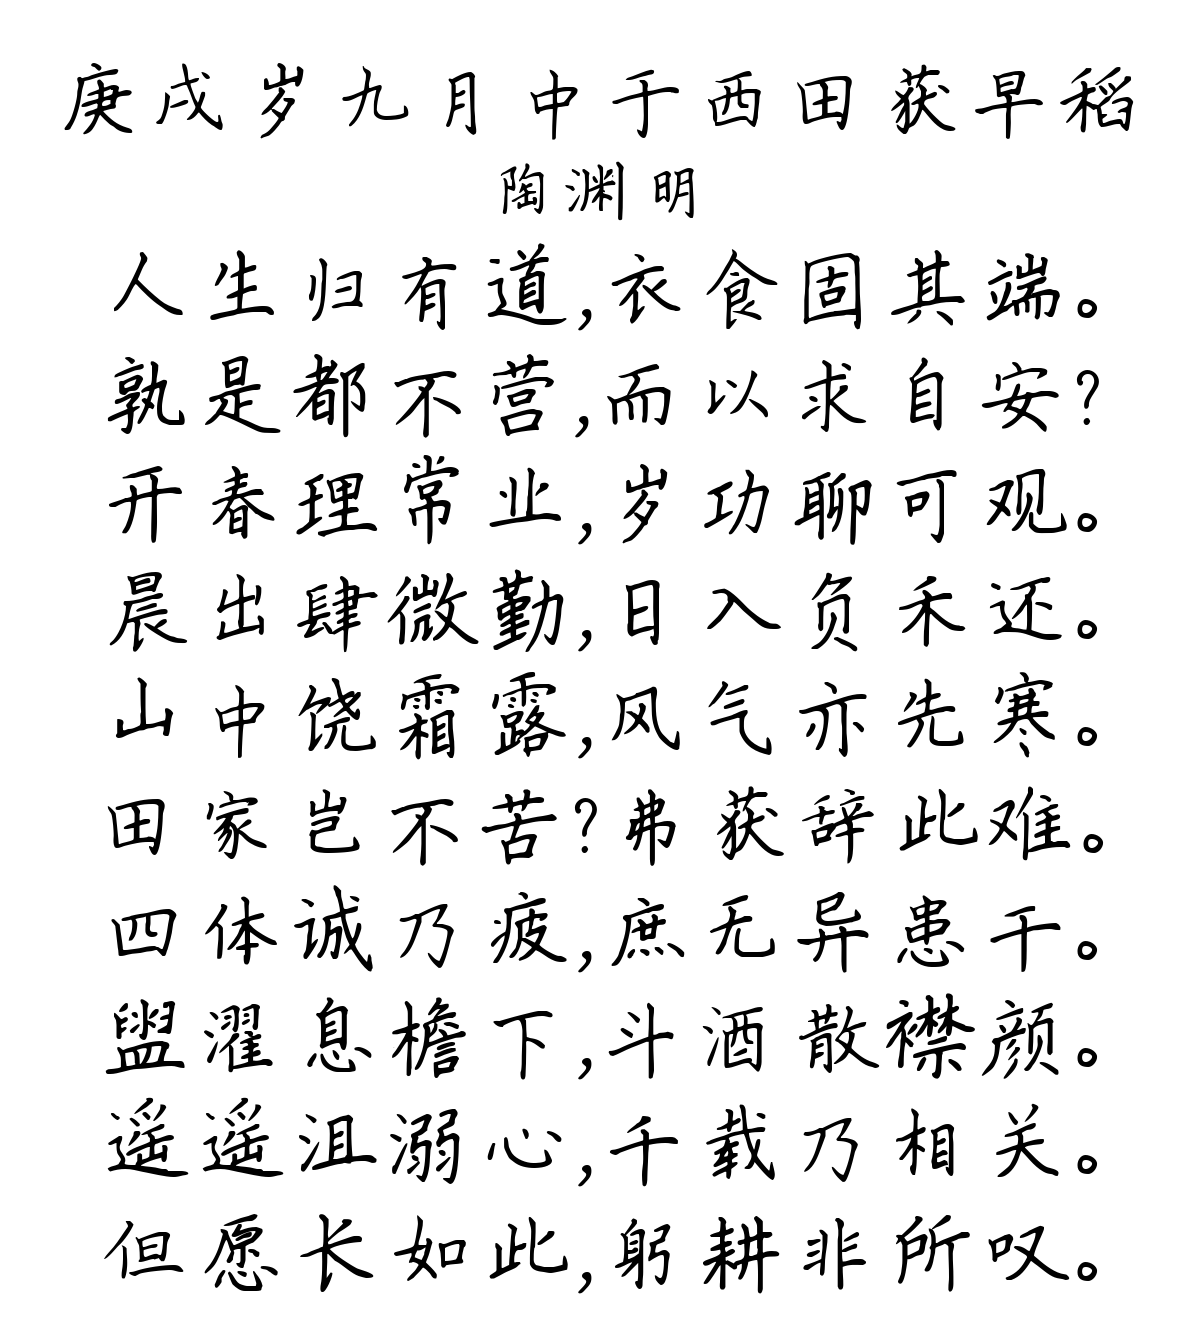 庚戌岁九月中于西田获早稻
陶渊明
人生归有道,衣食固其端。
孰是都不营,而以求自安?
开春理常业,岁功聊可观。
晨出肆微勤,日入负禾还。
山中饶霜露,风气亦先寒。
田家岂不苦?弗获辞此难。
四体诚乃疲,庶无异患干。
盥濯息檐下,斗酒散襟颜。
遥遥沮溺心,千载乃相关。
但愿长如此,躬耕非所叹。